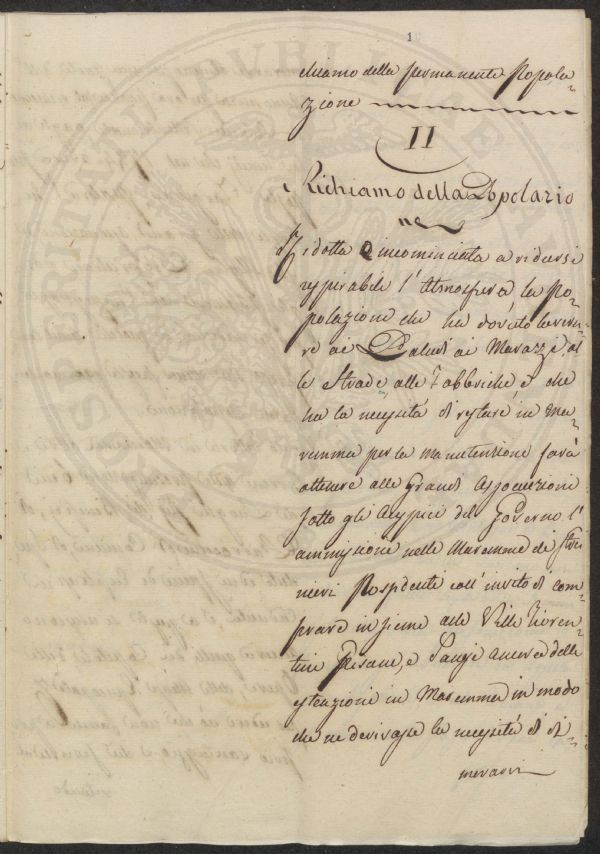 chiamo della permanente Popola=
zione
II
Richiamo della Popolazio
ne
Ridotta o incominciata a ridursi
respirabile l'Atmosfera, la Po=
polazione che ha dovuto lavora=
re ai Paduli ai Marazzi, al=
le Strade, alle Fabbriche, e che
ha la necessità di restare in Ma=
remma per la manutenzione farà
ottenere alle Grandi Associazioni
sotto gli Auspici del Governo l'
ammissione nelle Maremme de Stra=
nieri Possidenti coll'invito di com=
prare insieme alle Ville Fioren=
tine Pisane, e Sanesi ancora delle
estenzioni in Maremma in modo
che ne derivasse la necessità di di=
morarvi